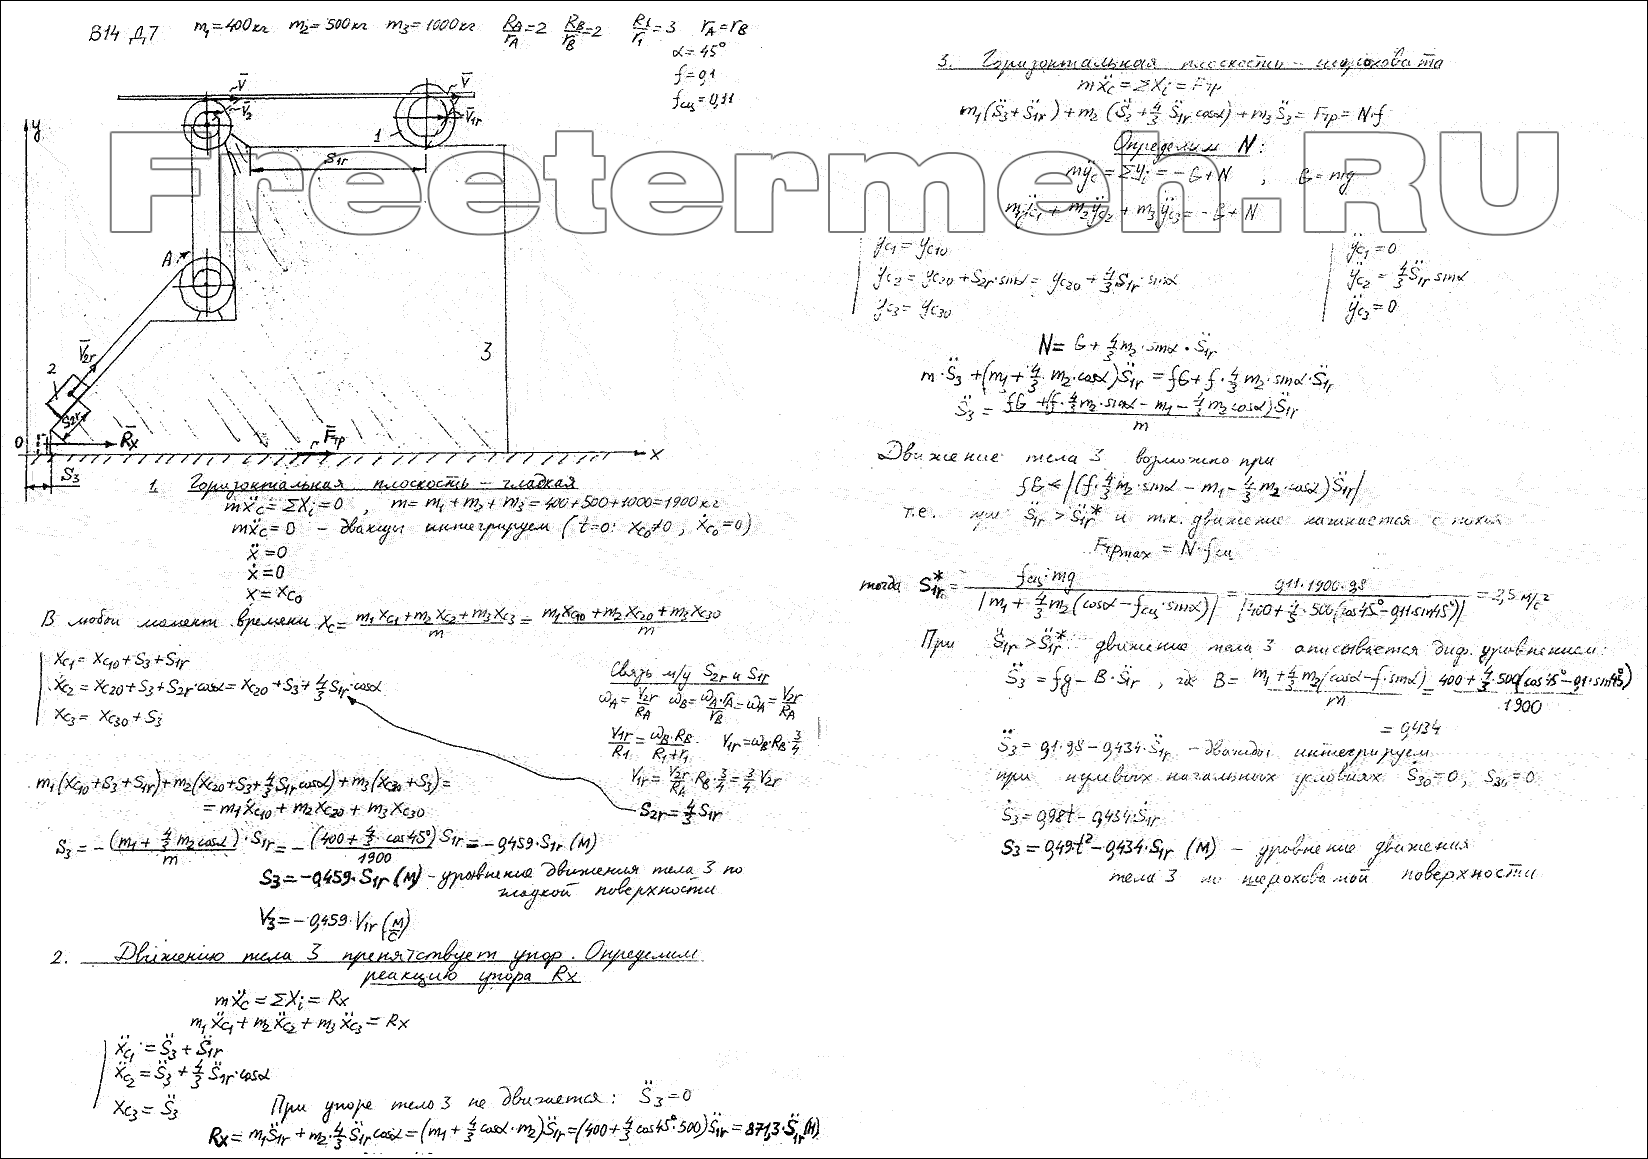 В14 Д7 m₁=400кг m₂=500кг m₃=1000кг R_A/r_A=2 R_B/r_B=2 R1/r1=3 r_A=r_B
α=45°
f=0,1
f_сц=0,11
Freetermeh.RU
y
V̄
V̄
V̄₂
V̄₁r
1
S₁r
A
V̄₂r
2
3
S₂r
0
R̄x
F̄тр
x
S₃
1. Горизонтальная плоскость – гладкая
mẍc=ΣXi=0 , m=m₁+m₂+m₃=400+500+1000=1900кг
mẍc=0 – дважды интегрируем (t=0: xc₀≠0; ẋc₀=0)
ẍ=0
ẋ=0
x=xc₀
В любой момент времени xc=(m₁xc₁+m₂xc₂+m₃xc₃)/m=(m₁xc₁₀+m₂xc₂₀+m₃xc₃₀)/m
xc₁=xc₁₀+S₃+S₁r
xc₂=xc₂₀+S₃+S₂r·cosα=xc₂₀+S₃+4/3 S₁r cosα
xc₃=xc₃₀+S₃
Связь м/у S₂r и S₁r
ω_A=V₂r/R_A ω_B=ω_A·r_A/r_B=ω_A=V₂r/R_A
V₁r/R₁=ω_B·R_B/(R₁+r₁) V₁r=ω_B·R_B·3/4
V₁r=V₂r/R_A·R_B·3/4=3/4 V₂r
S₂r=4/3 S₁r
m₁(xc₁₀+S₃+S₁r)+m₂(xc₂₀+S₃+4/3 S₁r cosα)+m₃(xc₃₀+S₃)=
=m₁xc₁₀+m₂xc₂₀+m₃xc₃₀
S₃=-(m₁+4/3 m₂cosα)/m·S₁r=-(400+4/3 cos45°)/1900 S₁r=-0,459·S₁r (м)
S₃=-0,459·S₁r (м) – уравнение движения тела 3 по
гладкой поверхности
V₃=-0,459·V₁r (м/с)
2. Движению тела 3 препятствует упор. Определим
реакцию упора Rx
mẍc=ΣXi=Rx
m₁ẍc₁+m₂ẍc₂+m₃ẍc₃=Rx
ẍc₁=S̈₃+S̈₁r
ẍc₂=S̈₃+4/3 S̈₁r·cosα
ẍc₃=S̈₃
При упоре тело 3 не движется: S̈₃=0
Rx=m₁S̈₁r+m₂·4/3 S̈₁r cosα=(m₁+4/3 cosα·m₂)S̈₁r=(400+4/3 cos45°·500)S̈₁r=871,3·S̈₁r(Н)
3. Горизонтальная плоскость – шероховата
mẍc=ΣXi=Fтр
m₁(S̈₃+S̈₁r)+m₂(S̈₃+4/3 S̈₁r cosα)+m₃S̈₃=Fтр=N·f
Определим N:
mÿc=ΣYi=-G+N , G=mg
m₁ÿc₁+m₂ÿc₂+m₃ÿc₃=-G+N
yc₁=yc₁₀
yc₂=yc₂₀+S₂r·sinα=yc₂₀+4/3 S₁r·sinα
yc₃=yc₃₀
ÿc₁=0
ÿc₂=4/3 S̈₁r sinα
ÿc₃=0
N=G+4/3 m₂·sinα·S̈₁r
m·S̈₃+(m₁+4/3·m₂·cosα)S̈₁r=fG+f·4/3 m₂·sinα·S̈₁r
S̈₃=(fG+(f·4/3 m₂·sinα-m₁-4/3 m₂cosα)S̈₁r)/m
Движение тела 3 возможно при
fG<|(f·4/3 m₂·sinα-m₁-4/3 m₂·cosα)S̈₁r|
т.е. при S̈₁r>S̈₁r* и т.к. движение начинается с покоя
Fтрmax=N·fсц
тогда S̈₁r*=fсц·mg/|m₁+4/3 m₂(cosα-fсц·sinα)|=0,11·1900·9,8/|400+4/3·500(cos45°-0,11·sin45°)|=2,5 м/с²
При S̈₁r>S̈₁r* движение тела 3 описывается диф. уравнением:
S̈₃=fg-B·S̈₁r , где B=(m₁+4/3 m₂(cosα-f·sinα))/m=(400+4/3·500(cos45°-0,1·sin45°))/1900
=0,434
S̈₃=0,1·9,8-0,434·S̈₁r – дважды интегрируем
при нулевых начальных условиях Ṡ₃₀=0, S₃₀=0
Ṡ₃=0,98t-0,434·Ṡ₁r
S₃=0,49t²-0,434·S₁r (м) – уравнение движения
тела 3 по шероховатой поверхности